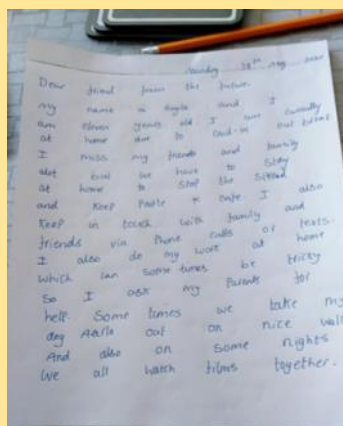 Dear friend from the future.
My name is and I
am eleven years old I am currently
at home due to out break
I miss my friends and family
alot but we have to stay
at home to stop the spread
and keep safe. I also
Keep in touch with family and
friends via phone calls or texts.
I also do my work at home
which can some times be tricky
So I ask my parents for
help. Some times we take my
dog out on nice walks
And also on some nights
We all watch films together.